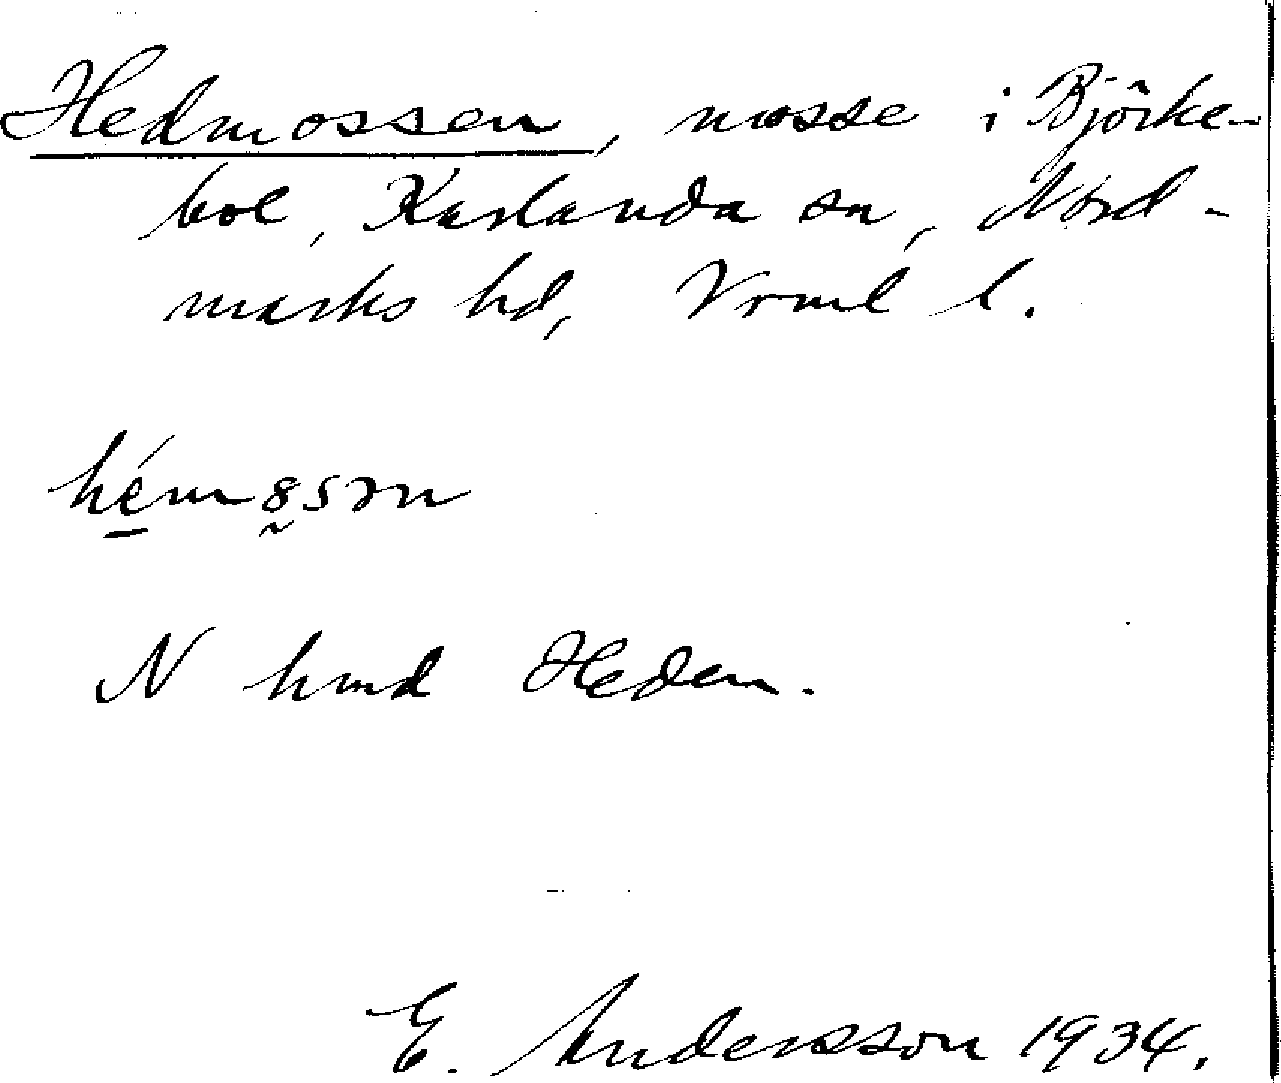 Hedmossen, mosse i Björke-
bol, Karlanda sn, Nord-
marks hd, Vrml l.
N hmd Heden.
E. Andersson 1934.